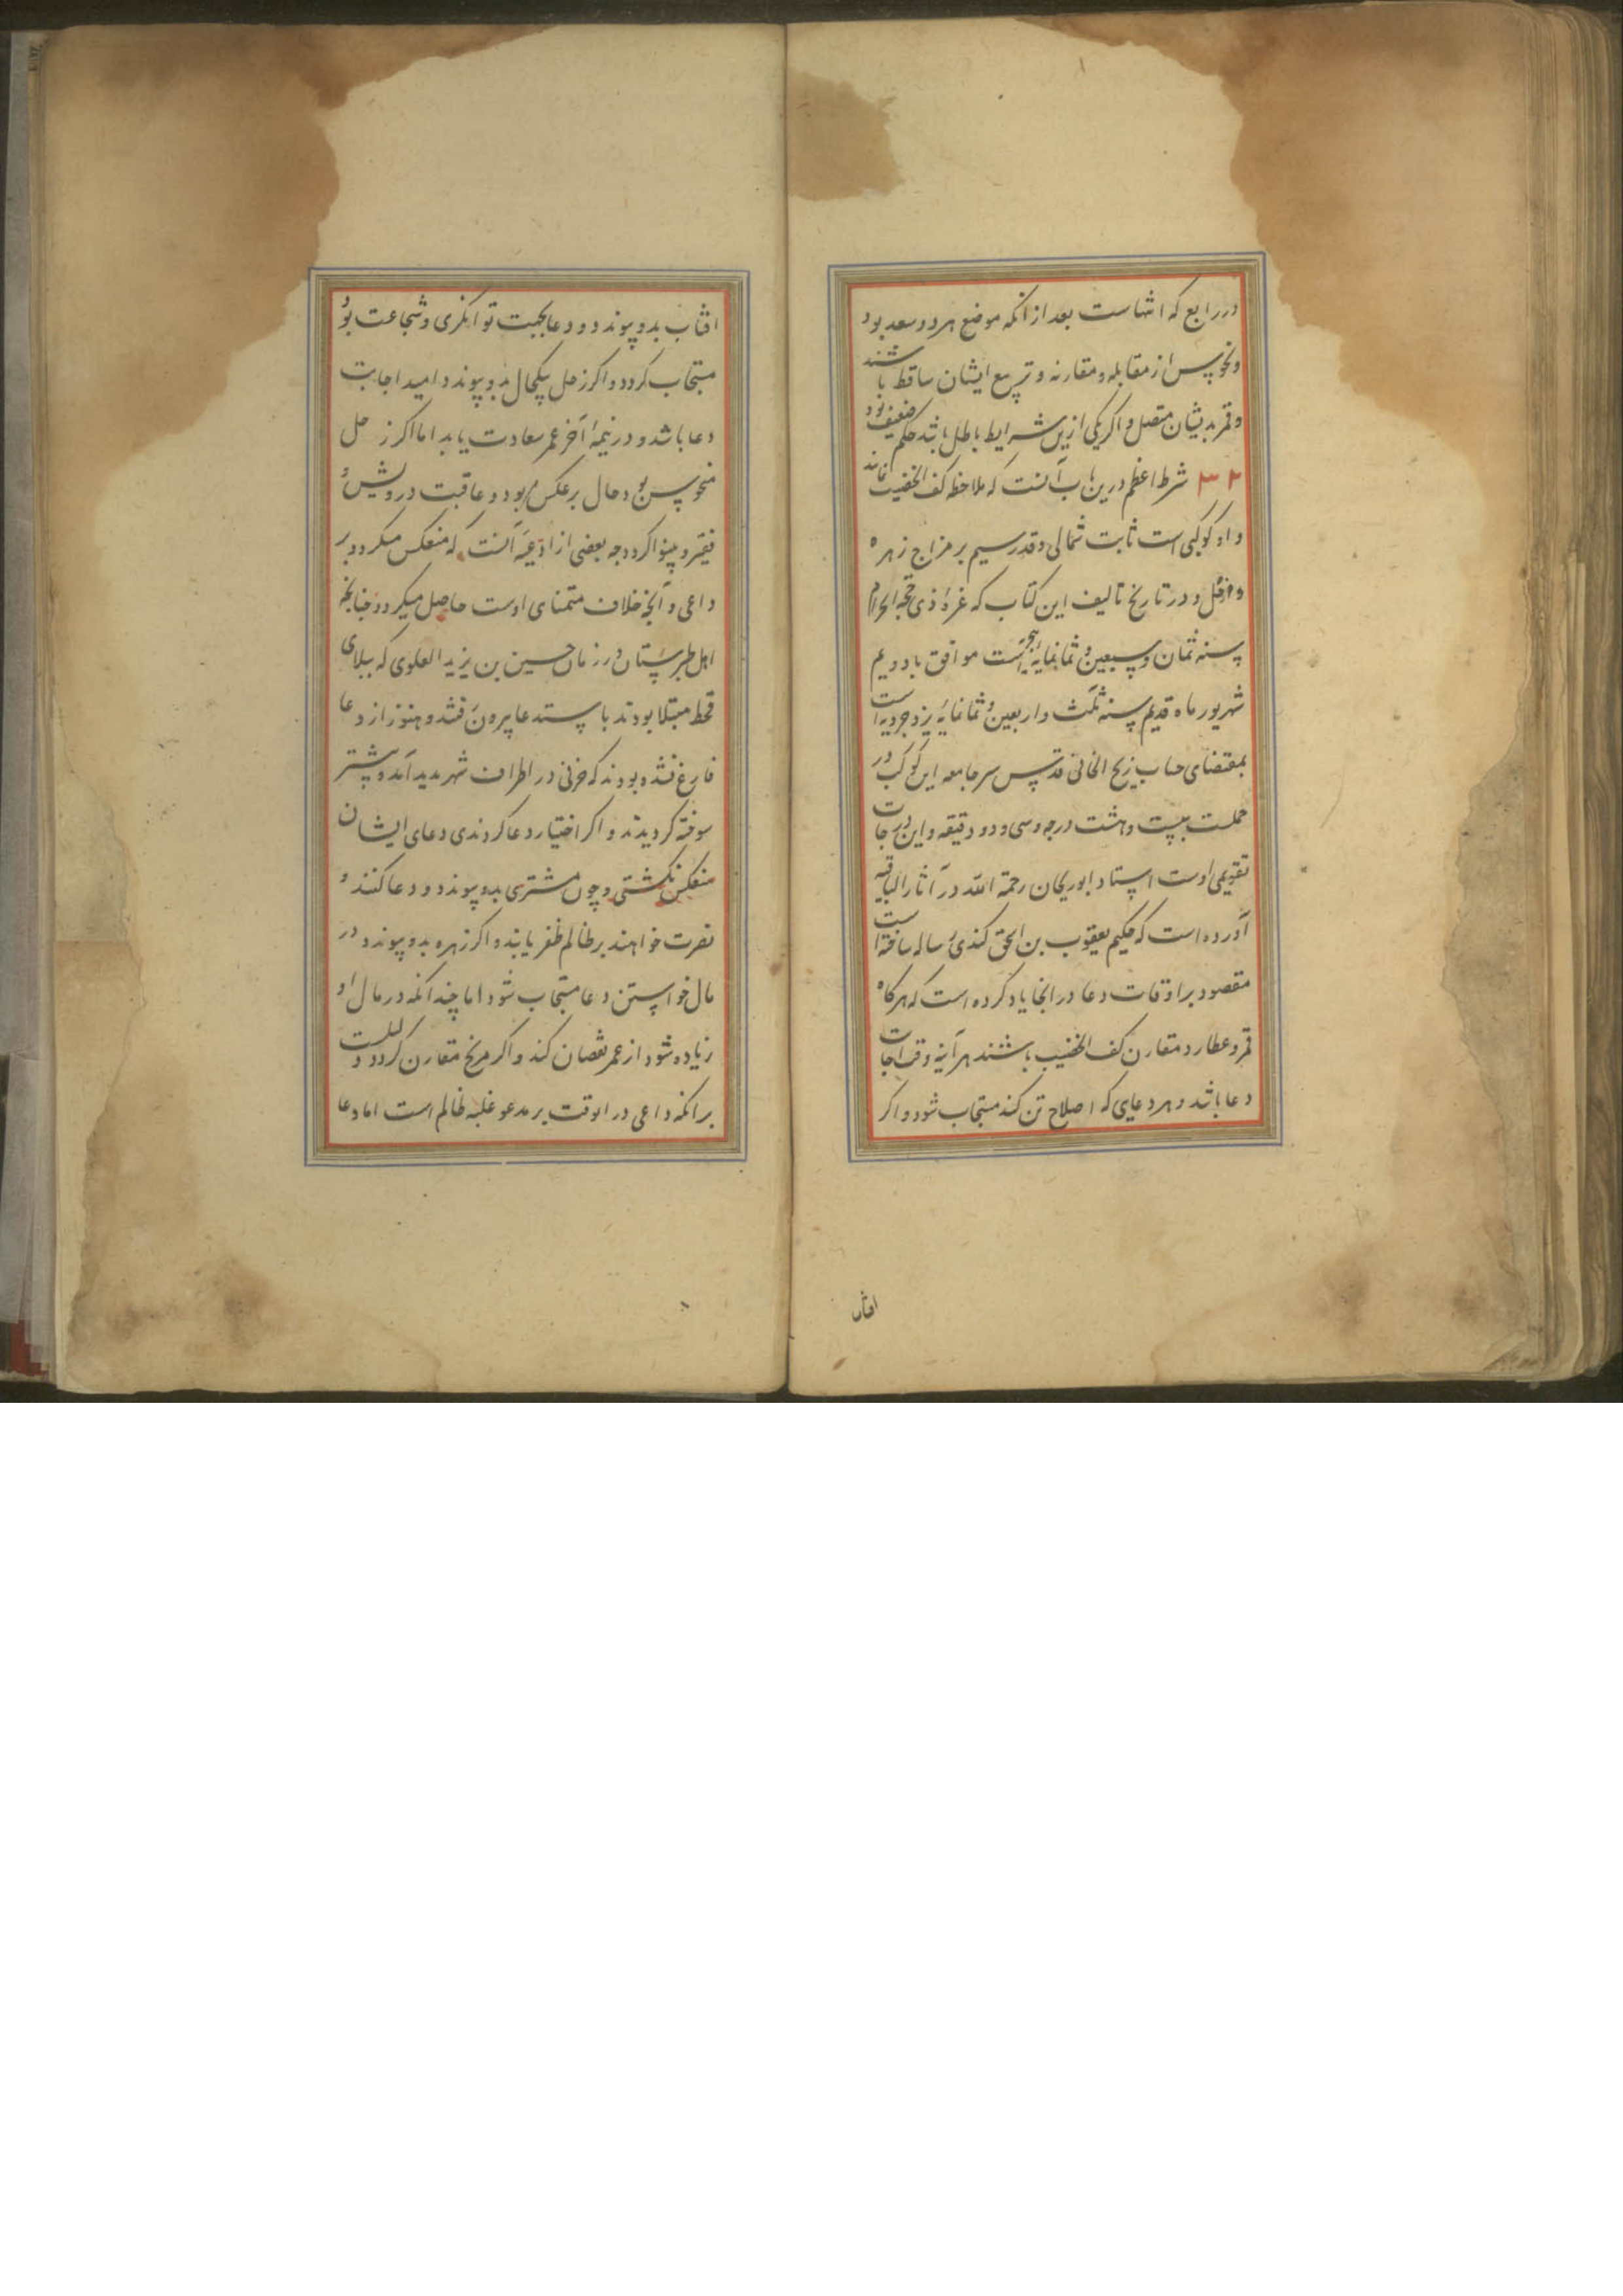 در رابع که انتهاست بعد از انکه موضع هر دو سعد بود
ونحوس از مقابله و مقارنه و تربیع ایشان ساقط باشند
و قمر بدیشان متصل و اکر یکی ازین شرایط باطل باشد حکم ضعیف بود
۳۲ شرط اعظم درین باب آنست که ملاحظه کف الخضیب نمایند
و او کوکبی است ثابت شمالی و قدر سیم بر مزاج زهره
و زحل و در تاریخ تالیف این کتاب که غره ذی حجه الحرام
سنه ثمان و سبعین و ثمانمایه هجریه است موافق باد دویم
شهریور ماه قدیم سنه ثلث و اربعین و ثمانمایه یزدجردیه است
بمقتضای حساب زیج الخانی قدس سر جامعه این کوکب در
حملست بیست و هشت درجه و سی و دو دقیقه و این درجات
تقویمی اوست استاد ابوریحان رحمة الله در آثار الباقیه
آورده است که حکیم یعقوب بن اسحق کندی رساله ساخته است
مقصود بر اوقات دعا در انجا یاد کرده است که هرکاه
قمر و عطارد مقارن کف الخضیب باشند هر آینه وقت اجابت
دعا باشد و هر دعای که اصلاح تن کند مستجاب شود و اکر
افتاب
افتاب بدو پیوندد و دعا بجهت توانکری و شجاعت بود
مستجاب کردد و اکر زحل نیکحال بدو پیوندد امید اجابت
دعا باشد و در نیمه آخر عمر سعادت یابد اما اکر زحل
منحوس بود حال بر عکس بود و عاقبت درویش و
فقیر و بینوا کردد چه بعضی از ادعیه آنست که منعکس میکردد بر
داعی و آنچه خلاف متمنای اوست حاصل میکردد چنانچه
اهل طبرستان در زمان حسین بن یزید العلوی که ببلای
قحط مبتلا بودند باستدعا بیرون رفتند و هنوز از دعا
فارغ نشده بودند که حرقی در اطراف شهر پدید آمد و بیشتر
سوخته کردیدند و اکر اختیار دعا کردندی دعای ایشان
منعکس نکشتی و چون مشتری بدو پیوندد و دعا کنند و
نصرت خواهند بر ظالم ظفر یابند و اکر زهره بدو پیوندد در
مال خواستن دعا مستجاب شود اما چندانکه در مال او
زیاده شود از عمر نقصان کند و اکر مریخ مقارن کردد دلیلست
برانکه داعی در انوقت بر مدعو غلبه ظالم است اما دعا